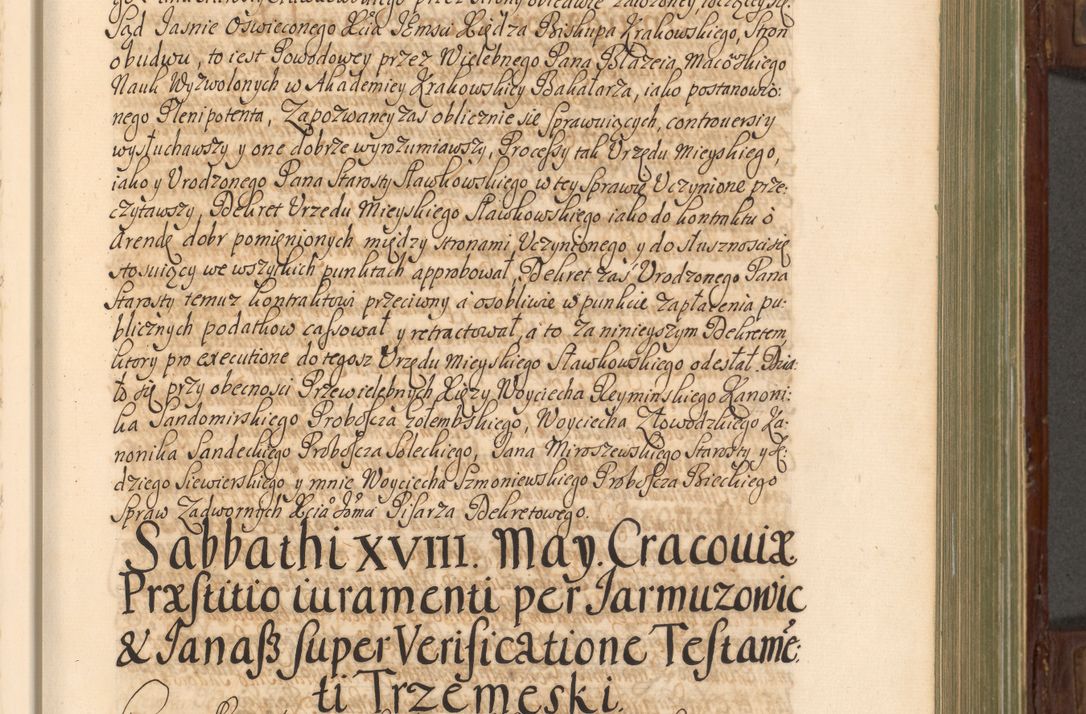 Sąd Jasnie Oswieconego Xcia Jemsci Xiędza Biskupa Krakowskiego, Stron
obudwu, to iest Powodowey przez Wielebnego Pana Błazeia Macoskiego
Nauk Wyzwolonych w Akademiey Krakowskiey Bakałarza, iako postanowio-
nego Plenipotenta, Zapozwaney zas oblicznie się sprawuiących, controuersiy
wysłuchawszy y one dobrze wyrozumiawszy, Processy tak Vrzędu Mieyskiego,
iako y Vrodzonego Pana Starosty Sławkowskiego w tey sprawie Vczynione prze-
czytawszy, Dekret Vrzedu Mieyskiego Sławkowskiego iako do kontraktu o
Arendę dobr pomienionych między stronami Vczynionego y do słusznosci się
stosuiący we wszytkich punktach approbował, Dekret zas Vrodzonego Pana
Starosty temuz kontraktowi przeciwny a osobliwie w punkcie zapłacenia pu-
blicznych podatkow cassował y retractował, a to za ninieyszym Dekretem,
ktory pro executione do tegosz Vrzędu Mieyskiego Sławkowskiego odesłał. Dzia-
ło się przy obecnosci Przewielebnych Xięzy Woyciecha Reyminskiego Kanoni-
ka Sandomirskiego Proboscza Gołembskiego, Woyciecha Złowodzkiego Ka-
nonika Sandeckiego Proboscza Soleckiego, Jana Miroszewskiego Starosty y Sę-
dziego Siewierskiego y mnie Woyciecha Szmoniewskiego Proboscza Bieckiego
Spraw Zadwornych Xcia Jomci Pisarza Dekretowego.
Sabbathi XVIII. May. Cracouiæ.
Præstitio iuramenti per Jarmuzowic
& Janasz super Verificatione Testamē-
ti Trzemeski.